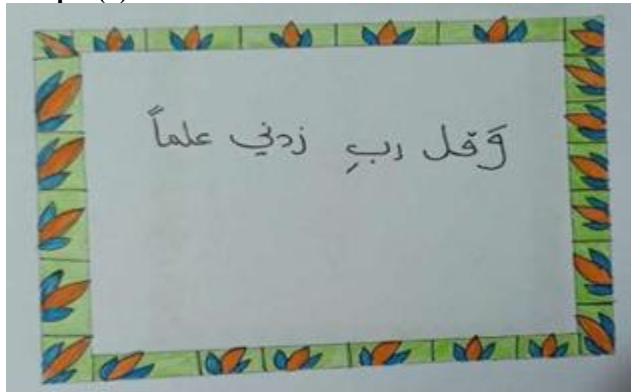 وَقل ربِ زدني علماً